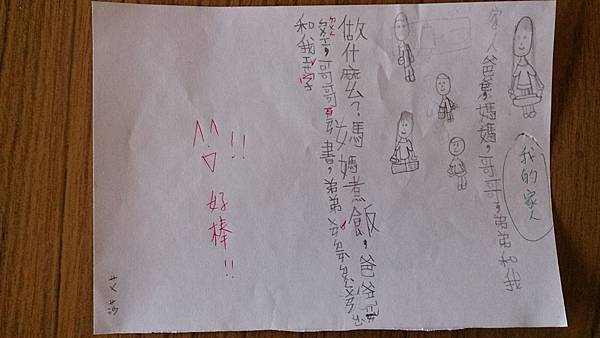 我的家人
家人爸爸,媽媽,哥哥,弟弟和我
做什麼?媽媽煮飯,爸爸
,哥哥書,弟弟
和我字
!!
好棒!!
艾莎